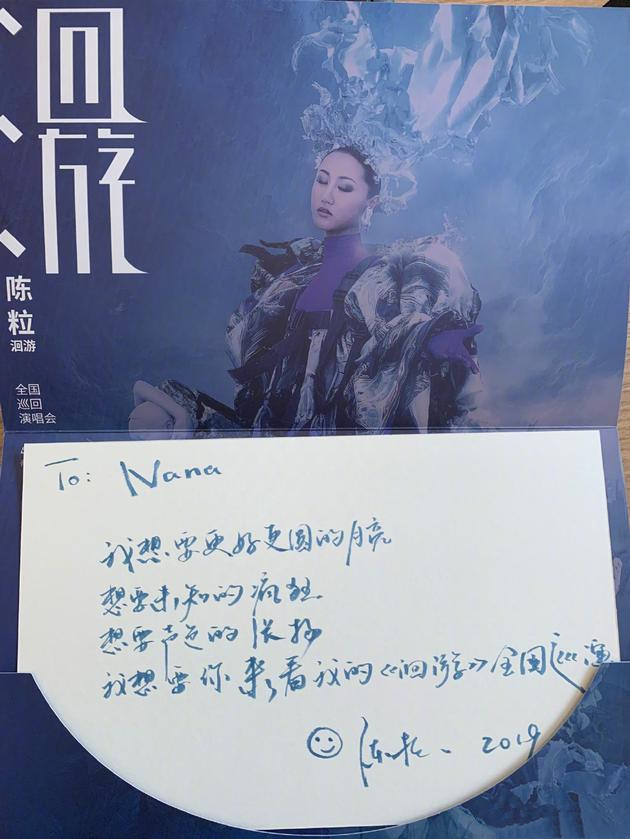 洄游
陈粒
洄游
全国
巡回
演唱会
To: Nana
我想要更好更圆的月亮
想要未知的疯狂
想要声色的张扬
我想要你来看我的《洄游》全国巡演
陈粒 2019